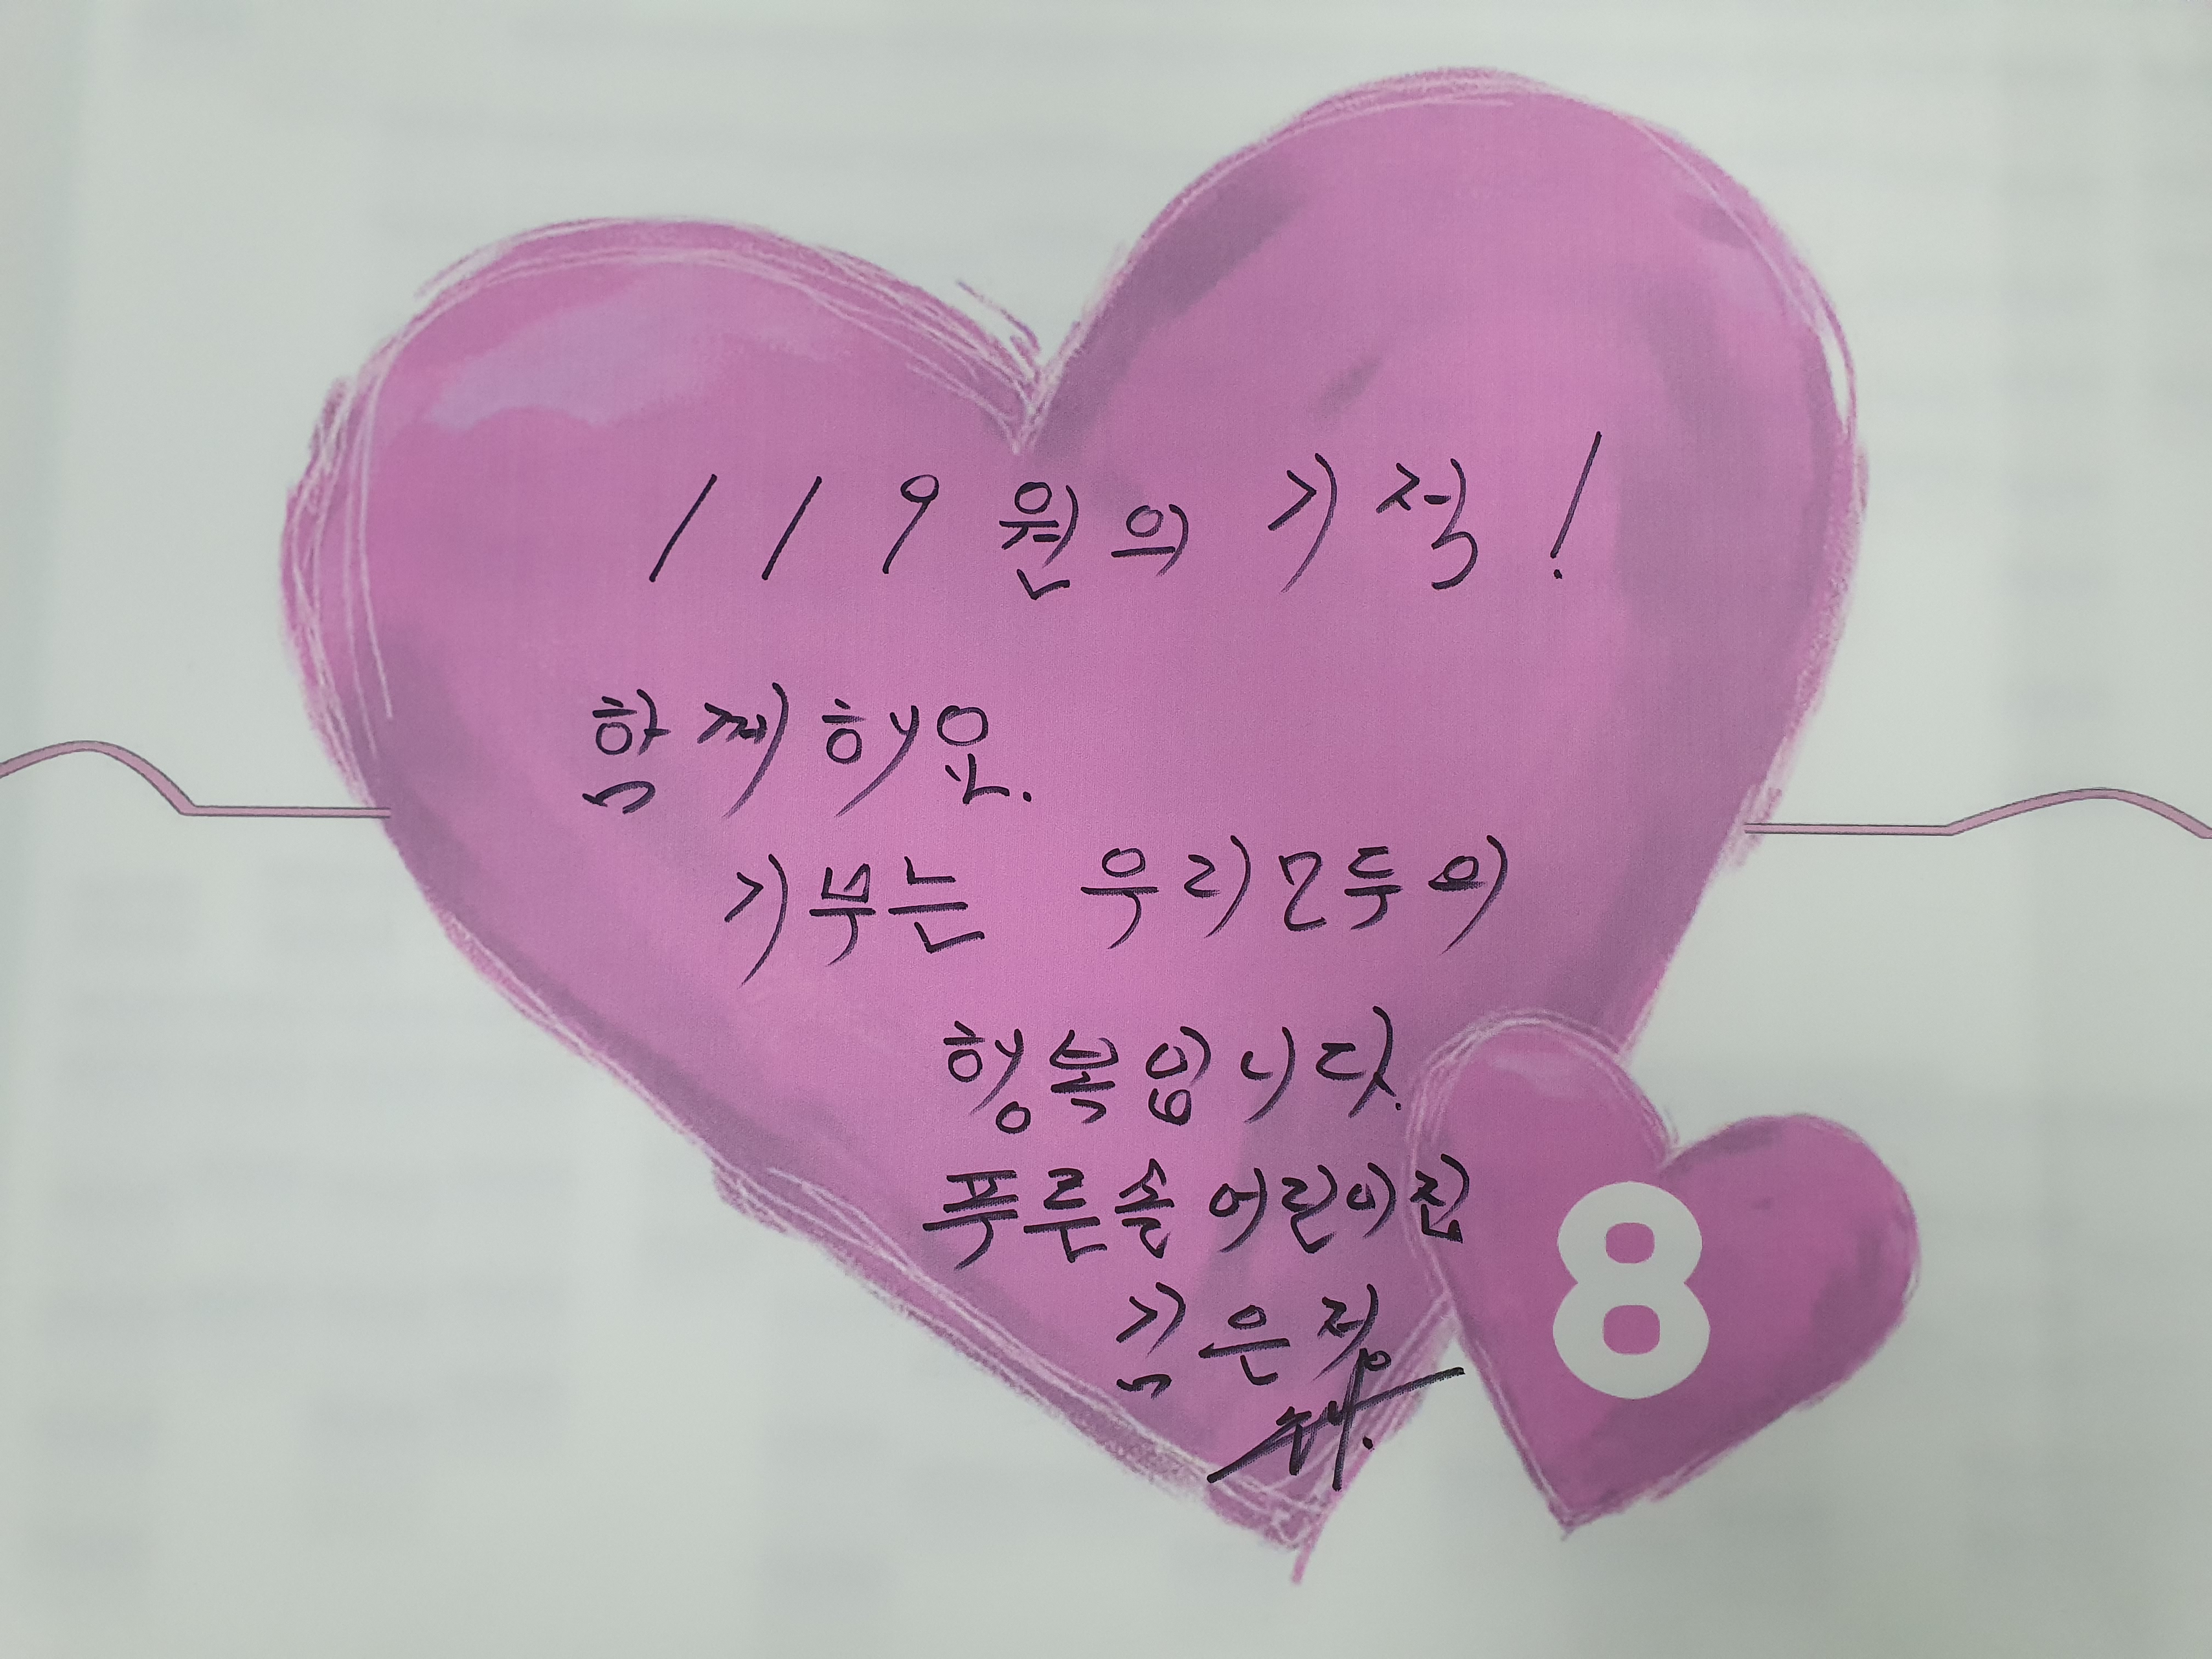 119원의 기적!
함께해요.
기부는 우리모두의
행복입니다.
푸른솔어린이집
김은정
8